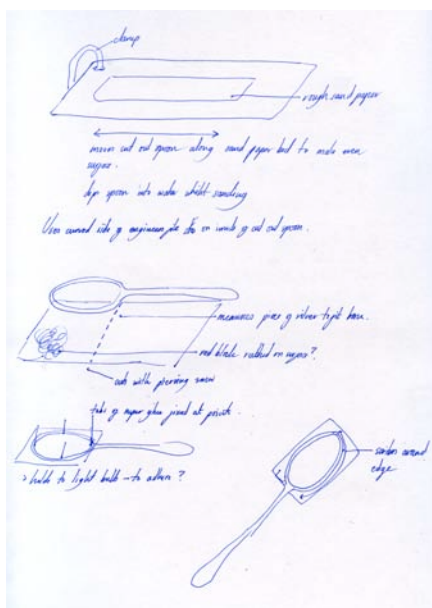 clamp
rough sand paper
moves cut out spoon along sand paper bed to make even
edges.
dips spoon into water whilst sanding
Uses curved side of engineers file on inside of cut out spoon.
measures piece of silver to fit base.
red blade rubbed on edges?
cuts with piercing saw
tube of super glue joined at points.
> holds to light bulb – to adhere?
solders around
edge